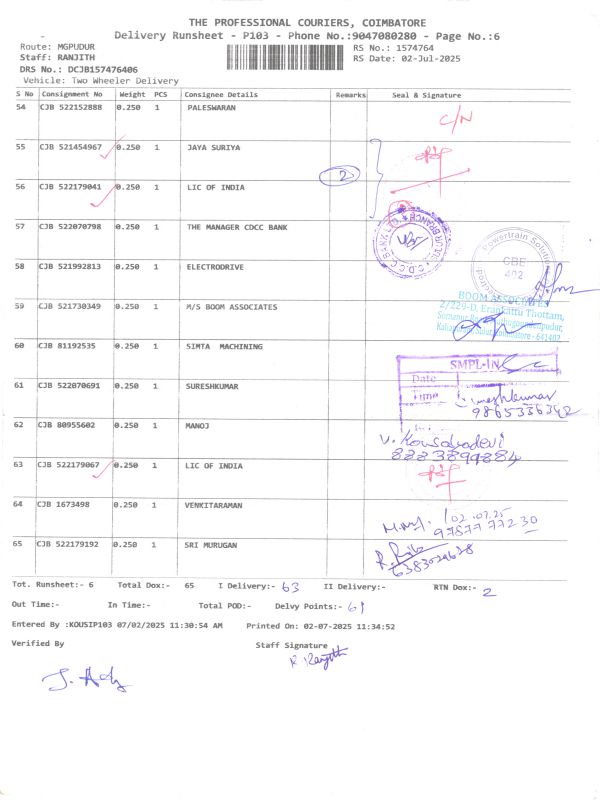 THE PROFESSIONAL COURIERS, COIMBATORE
Delivery Runsheet - P103 - Phone No.:9047080280 - Page No.:6
Route: MGPUDUR RS No.: 1574764
Staff: RANJITH RS Date: 02-Jul-2025
DRS No.: DCJB157476406
Vehicle: Two Wheeler Delivery
S No Consignment No Weight PCS Consignee Details Remarks Seal & Signature
54 CJB 522152888 0.250 1 PALESWARAN C/N
55 CJB 521454967 0.250 1 JAYA SURIYA
2
56 CJB 522179041 0.250 1 LIC OF INDIA
57 CJB 522070798 0.250 1 THE MANAGER CDCC BANK
Powertrain Solution
CBE
402
58 CJB 521992813 0.250 1 ELECTRODRIVE
BOOM ASSOCIATES
2/229-D, Erankattu Thottam,
59 CJB 521730349 0.250 1 M/S BOOM ASSOCIATES
60 CJB 81192535 0.250 1 SIMTA MACHINING
SMPL-IN
Date
61 CJB 522070691 0.250 1 SURESHKUMAR
Time
Sureshkumar
9865336342
62 CJB 80955602 0.250 1 MANOJ
V. Kousalyadevi
8883899884
63 CJB 522179067 0.250 1 LIC OF INDIA
64 CJB 1673498 0.250 1 VENKITARAMAN
02.07.25
97877 77230
65 CJB 522179192 0.250 1 SRI MURUGAN
6383029628
Tot. Runsheet:- 6 Total Dox:- 65 I Delivery:- 63 II Delivery:- RTN Dox:- 2
Out Time:- In Time:- Total POD:- Delvy Points:- 61
Entered By :KOUSIP103 07/02/2025 11:30:54 AM Printed On: 02-07-2025 11:34:52
Verified By Staff Signature
R. Ranjith